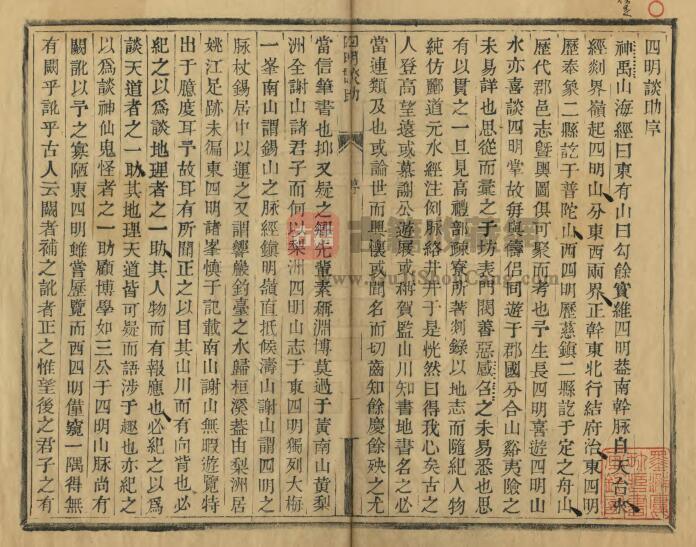 四明談助序
神禹山海經曰東有山曰勾餘實維四明葢南幹脉自天台水
經剡界嶺起四明山分東西兩界正幹東北行結府治東四明
歷奉象二縣訖于普陀山西四明歷慈鎮二縣訖于定之舟山
歷代郡邑志曁輿圖俱可聚而考也予生長四明喜遊四明山
水亦喜談四明掌故每與儔侶同遊于郡國分合山谿夷險之
未易詳也思從而彙之于坊表門閥善惡感召之未易悉也思
有以貫之一旦見高禮部疎寮所著剡錄以地志而隨紀人物
純仿酈道元水經注例脉絡井井于是恍然曰得我心矣古之
人登高望遠或慕謝公遊屐或稱賀監山川知書地書名之必
當連類及也或論世而興懷或聞名而切齒知餘慶餘殃之尤
四明談助
序
一
當信筆書也抑又疑之鄉先輩素稱淵博莫過于黃南山黃梨
洲全謝山諸君子而何以梨洲四明山志于東四明獨列大梅
一峯南山謂錫山之脉經鎮明嶺直抵候濤山謝山謂四明之
脉杖錫居中以運之又謂響巖釣臺之水歸桓溪葢由梨洲居
姚江足跡未徧東四明諸峯慎于記載南山謝山無暇遊覽特
出于臆度耳予故耳有所聞正之以目其山川而有向背也必
紀之以爲談地理者之一助其人物而有報應也必紀之以爲
談天道者之一助其地理天道皆可疑而語涉于趣也亦紀之
以爲談神仙鬼怪者之一助顧博學如三公于四明山脉尚有
闕訛以予之寡陋東四明雖嘗歷覽而西四明僅窺一隅得無
有闕乎訛乎古人云闕者補之訛者正之惟望後之君子之有